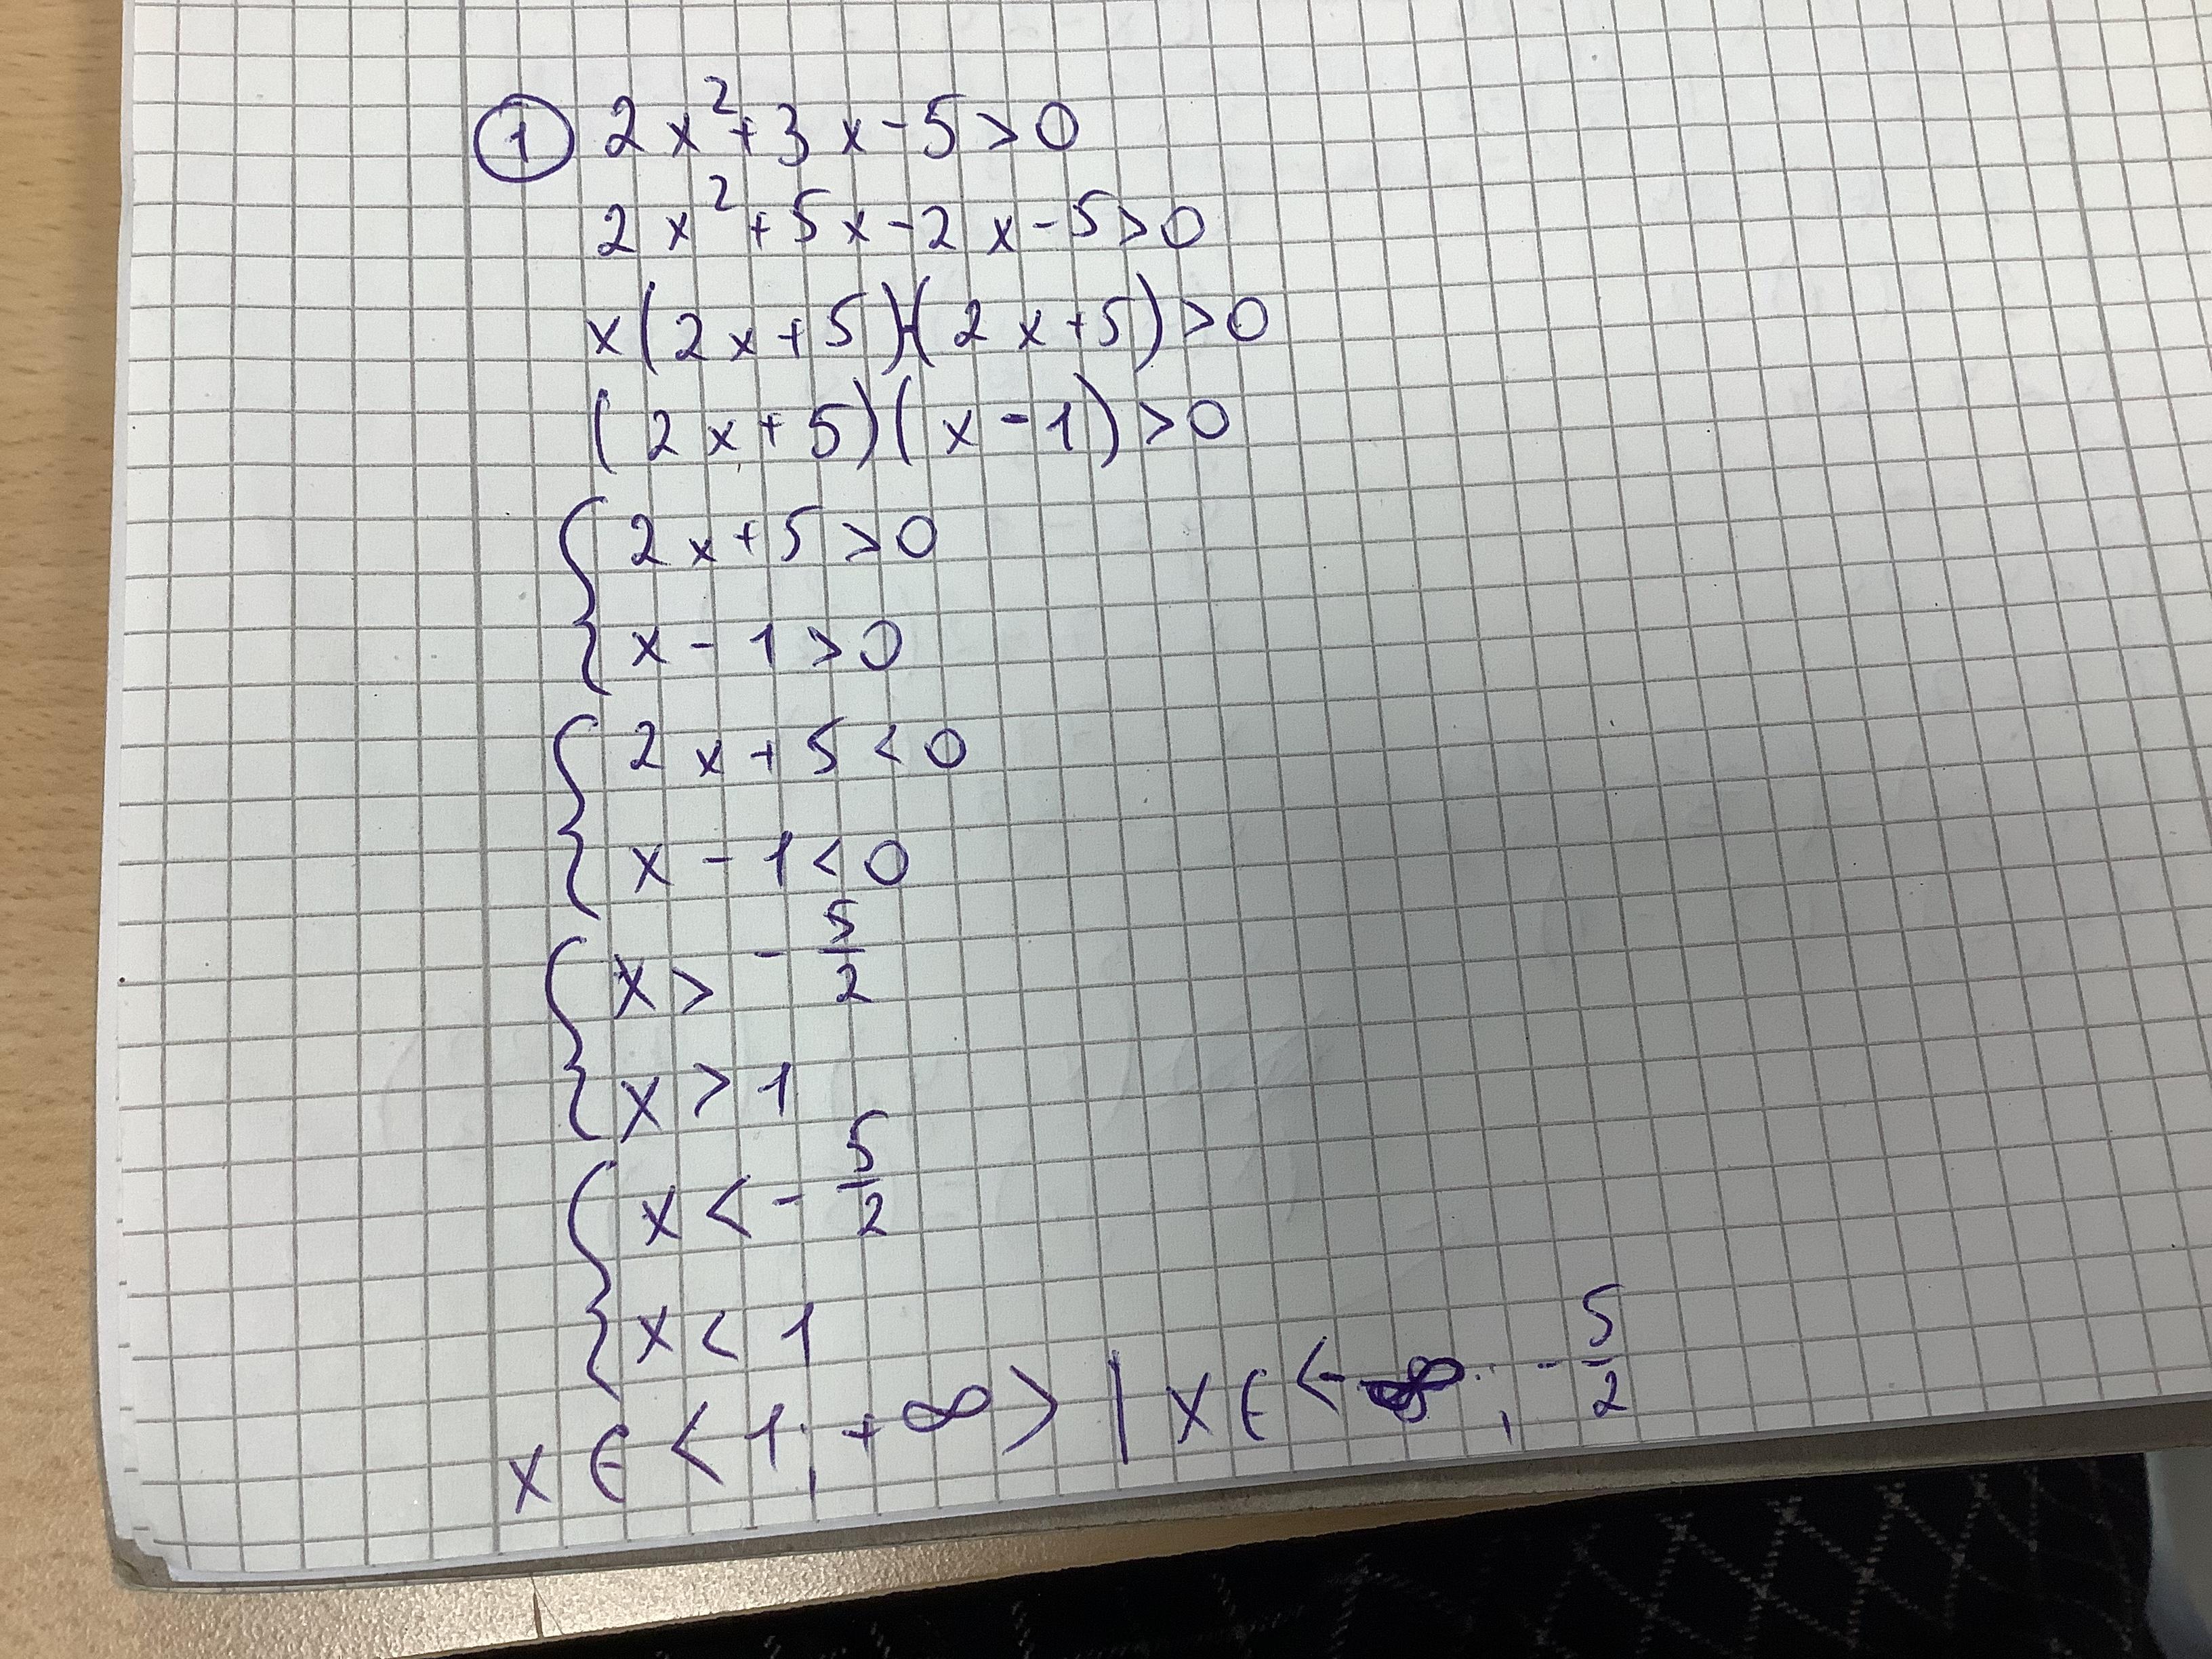 ① 2x²+3x-5>0
2x²+5x-2x-5>0
x(2x+5)-(2x+5)>0
(2x+5)(x-1)>0
{2x+5>0
x-1>0
{2x+5<0
x-1<0
{x>-5/2
x>1
{x<-5/2
x<1
x∈<1;+∞> | x∈<-∞; -5/2